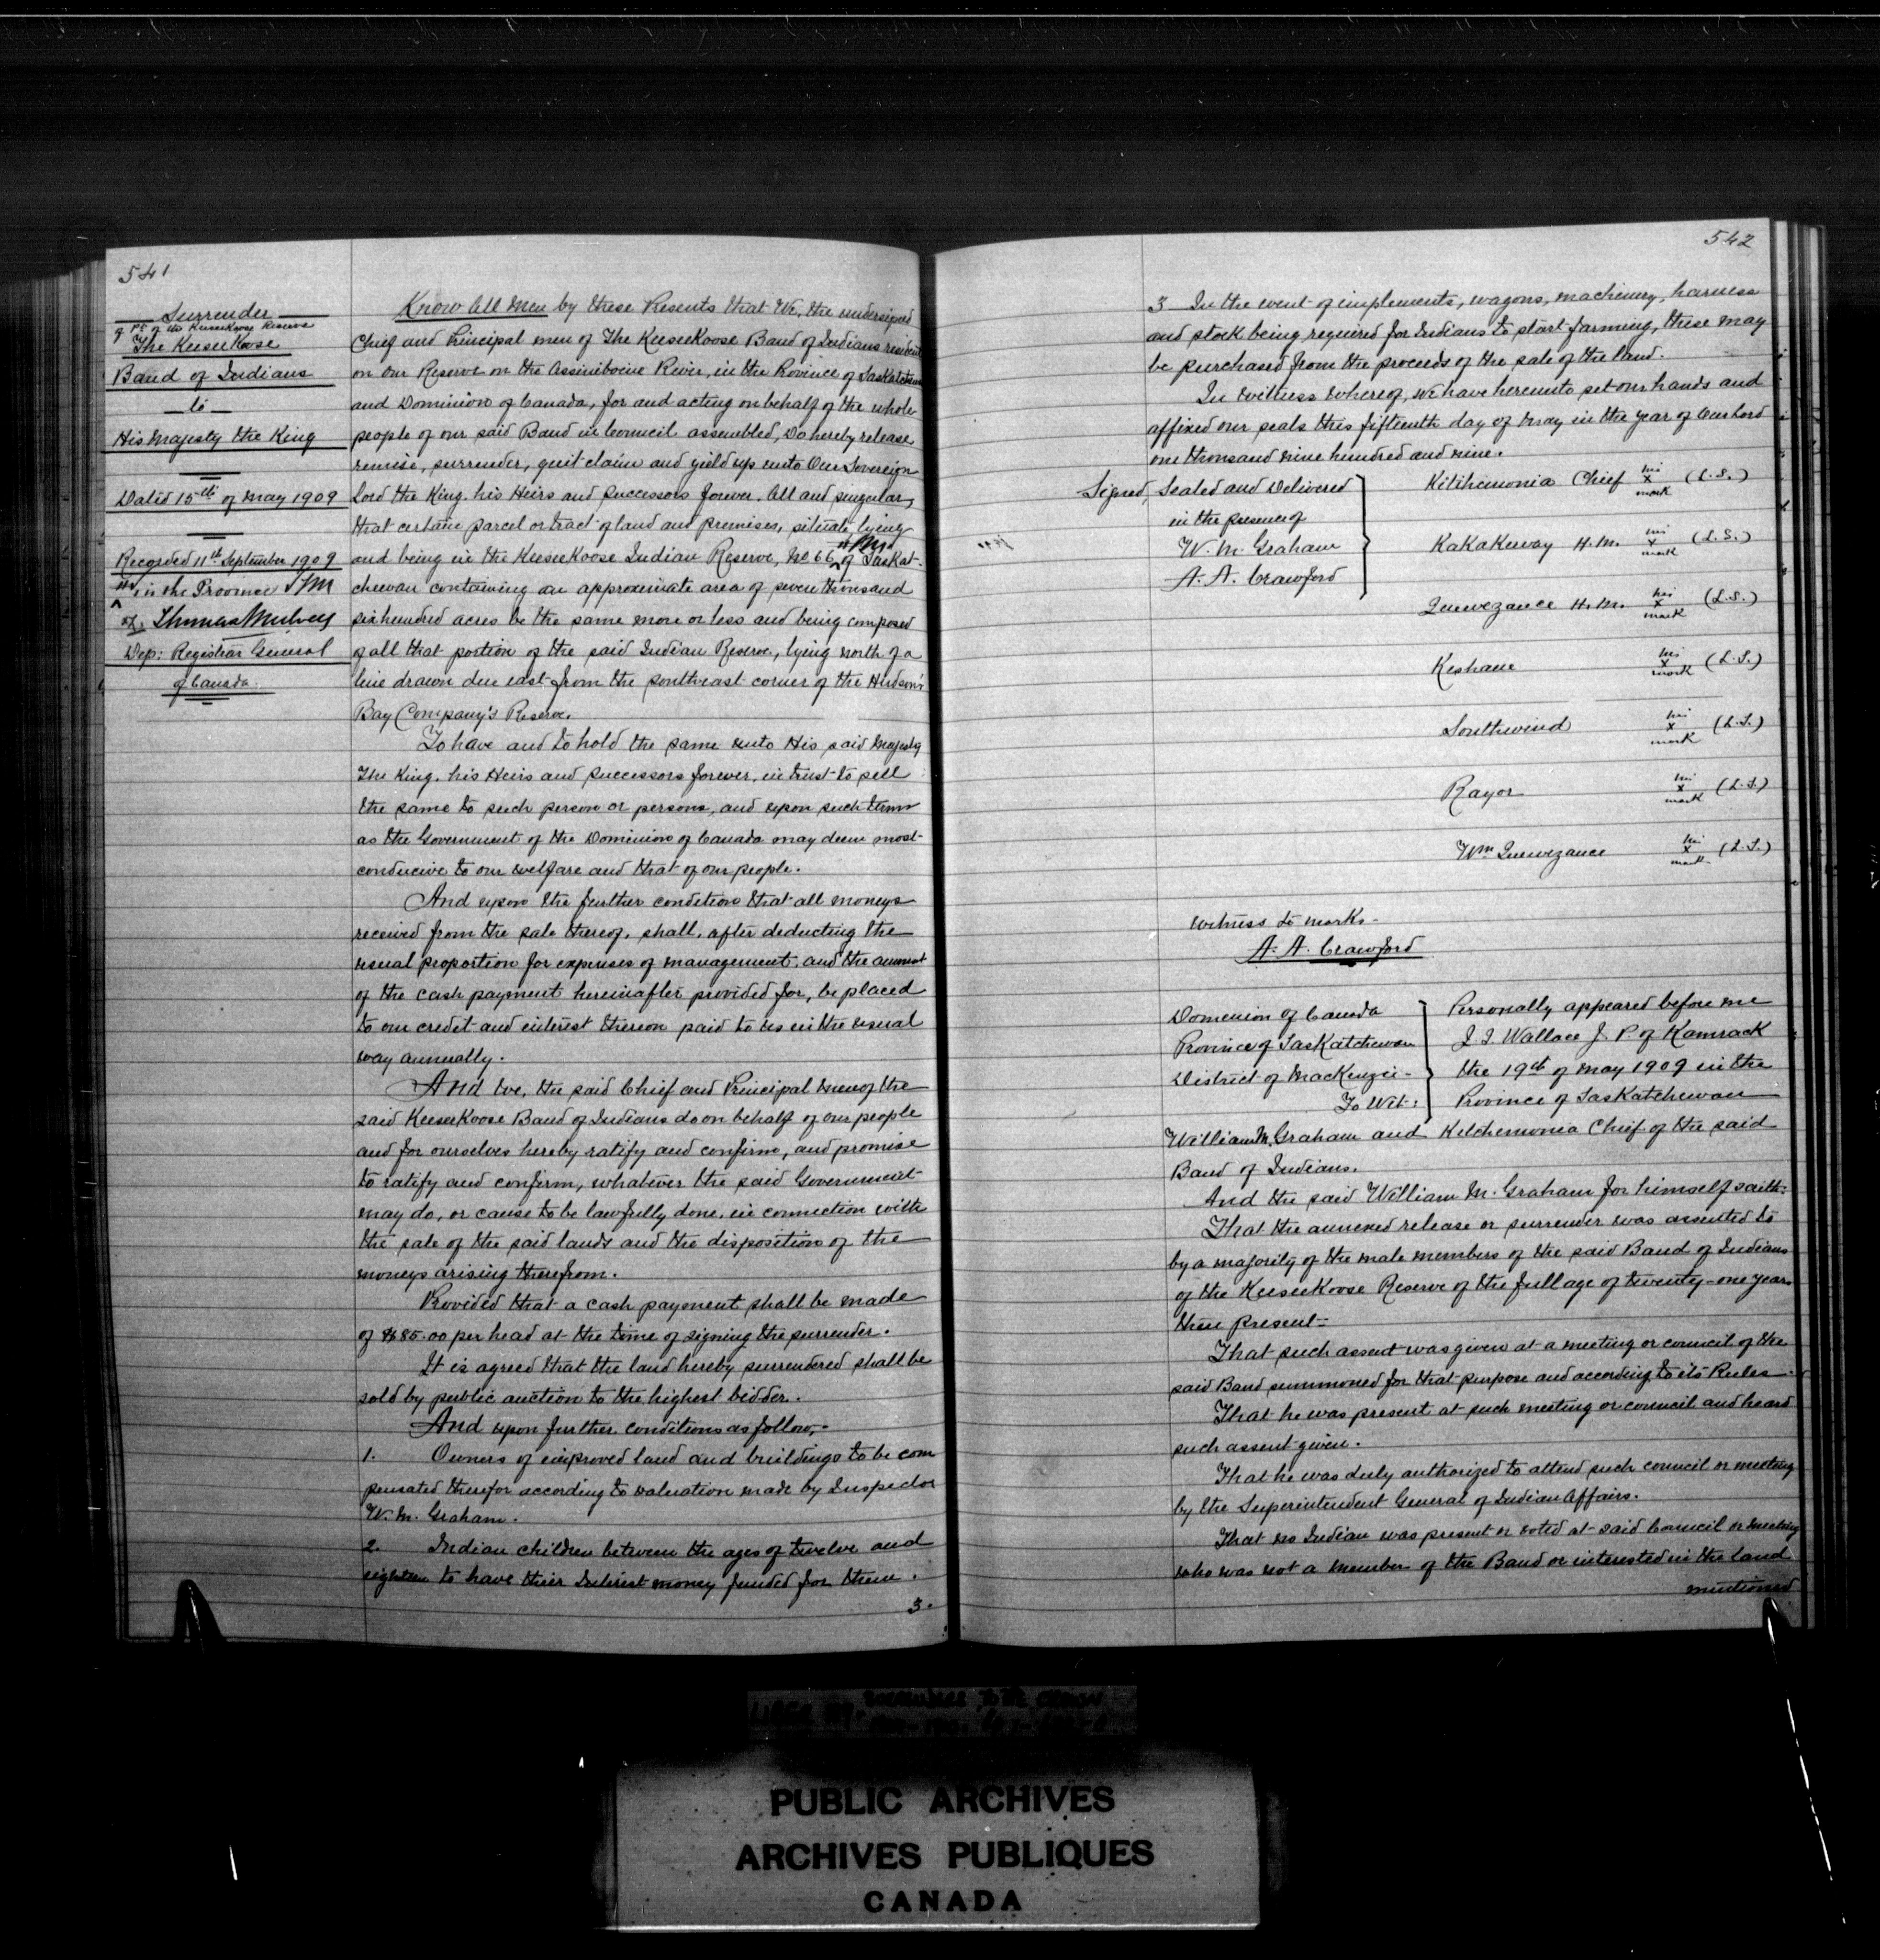 541
Surrender
of pt of the KeeseeKoose Reserve
The KeeseeKoose
Band of Indians
to
His Majesty the King
Dated 15th of May 1909
Recorded 11th September 1909
in the Province
Thomas Mulvey
Dep: Registrar General
of Canada.
Know All Men by these Presents that We, the undersigned
Chief and Principal men of The KeeseeKoose Band of Indians resident
on our Reserve on the Assiniboine River, in the Province of Saskatchewan
and Dominion of Canada, for and acting on behalf of the whole
people of our said Band in Council assembled, Do hereby release
remise, surrender, quit claim and yield up unto Our Sovereign
Lord the King, his Heirs and Successors forever, All and singular,
that certain parcel or tract of land and premises, situate, lying
and being in the KeeseeKoose Indian Reserve, No 66, of Saskat-
chewan containing an approximate area of seven thousand
six hundred acres be the same more or less and being composed
of all that portion of the said Indian Reserve, lying north of a
line drawn due east from the southeast corner of the Hudson's
Bay Company's Reserve.
To have and to hold the same unto His said Majesty
The King, his Heirs and Successors forever, in trust to sell
the same to such person or persons, and upon such terms
as the Government of the Dominion of Canada may deem most
conducive to our welfare and that of our people.
And upon the further condition that all moneys
received from the sale thereof, shall, after deducting the
usual proportion for expenses of management, and the amount
of the cash payment hereinafter provided for, be placed
to our credit and interest thereon paid to us in the usual
way annually.
And We, the said Chief and Principal Men of the
said KeeseeKoose Band of Indians do on behalf of our people
and for ourselves hereby ratify and confirm, and promise
to ratify and confirm, whatever the said Government
may do, or cause to be lawfully done, in connection with
the sale of the said lands and the disposition of the
moneys arising therefrom.
Provided that a cash payment shall be made
of $85.00 per head at the time of signing the surrender.
It is agreed that the land hereby surrendered shall be
sold by public auction to the highest bidder.
And upon further conditions as follow,-
1. Owners of improved land and buildings to be com
pensated therefor according to valuation made by Inspector
W. M. Graham.
2. Indian children between the ages of twelve and
eighteen to have their Interest money funded for them.
3.
542
3 In the event of implements, wagons, machinery, harness
and stock being required for Indians to start farming, these may
be purchased from the proceeds of the sale of the land.
In Witness Whereof, we have hereunto set our hands and
affixed our seals this fifteenth day of May in the year of Our Lord
one thousand nine hundred and nine.
Signed, Sealed and Delivered
in the presence of
W. M. Graham
A. A. Crawford
Kitchemonia Chief his x mark (L.S.)
KaKaKeway H.M. his x mark (L.S.)
Quewezance H.M. his x mark (L.S.)
Keshane his x mark (L.S.)
Southwind his x mark (L.S.)
Rayor his x mark (L.S.)
Wm Quewezance his x mark (L.S.)
Witness to marks-
A. A. Crawford
Dominion of Canada
Province of SasKatchewan
District of MacKenzie-
To Wit:
Personally appeared before me
J. I. Wallace J. P. of Kamsack
the 19th of May 1909 in the
Province of SasKatchewan
William M. Graham and Kitchemonia Chief of the said
Band of Indians.
And the said William M. Graham for himself saith:
That the annexed release or surrender was assented to
by a majority of the male members of the said Band of Indians
of the KeeseeKoose Reserve of the full age of twenty-one years
then Present-
That such assent was given at a meeting or council of the
said Band summoned for that purpose and according to its Rules-
That he was present at such meeting or council and heard
such assent given.
That he was duly authorized to attend such council or meeting
by the Superintendent General of Indian Affairs.
That no Indian was present or voted at said Council or meeting
who was not a Member of the Band or interested in the land
mentioned
PUBLIC ARCHIVES
ARCHIVES PUBLIQUES
CANADA